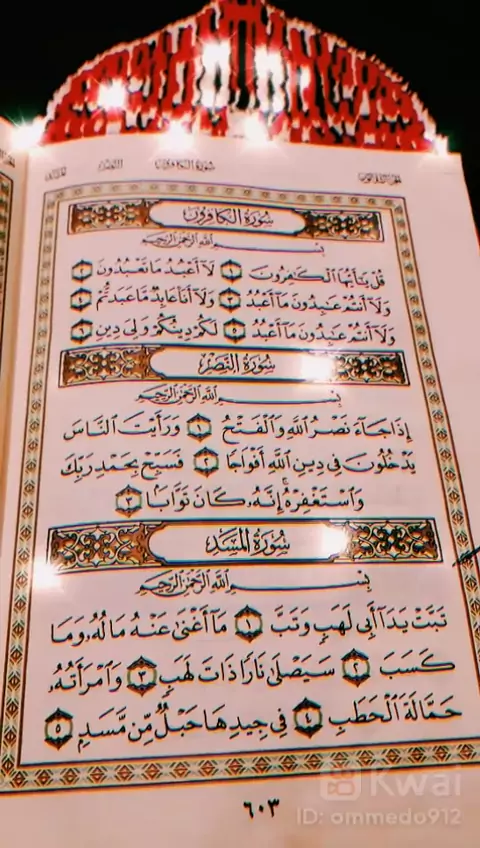 سُورَةُ الكَافِرُونَ
سُورَةُ الكَافِرُونَ
بِسْمِ اللَّهِ الرَّحْمَٰنِ الرَّحِيمِ
قُلْ يَٰٓأَيُّهَا ٱلْكَٰفِرُونَ ١ لَآ أَعْبُدُ مَا تَعْبُدُونَ ٢
وَلَآ أَنتُمْ عَٰبِدُونَ مَآ أَعْبُدُ ٣ وَلَآ أَنَا۠ عَابِدٌ مَّا عَبَدتُّمْ ٤
وَلَآ أَنتُمْ عَٰبِدُونَ مَآ أَعْبُدُ ٥ لَكُمْ دِينُكُمْ وَلِىَ دِينِ ٦
سُورَةُ النَّصْرِ
بِسْمِ اللَّهِ الرَّحْمَٰنِ الرَّحِيمِ
إِذَا جَآءَ نَصْرُ ٱللَّهِ وَٱلْفَتْحُ ١ وَرَأَيْتَ ٱلنَّاسَ
يَدْخُلُونَ فِى دِينِ ٱللَّهِ أَفْوَاجًا ٢ فَسَبِّحْ بِحَمْدِ رَبِّكَ
وَٱسْتَغْفِرْهُ إِنَّهُۥ كَانَ تَوَّابًۢا ٣
سُورَةُ المَسَدِ
بِسْمِ اللَّهِ الرَّحْمَٰنِ الرَّحِيمِ
تَبَّتْ يَدَآ أَبِى لَهَبٍ وَتَبَّ ١ مَآ أَغْنَىٰ عَنْهُ مَالُهُۥ وَمَا
كَسَبَ ٢ سَيَصْلَىٰ نَارًا ذَاتَ لَهَبٍ ٣ وَٱمْرَأَتُهُۥ
حَمَّالَةَ ٱلْحَطَبِ ٤ فِى جِيدِهَا حَبْلٌ مِّن مَّسَدٍۭ ٥
٦٠٣
Kwai
ID: ommedo912